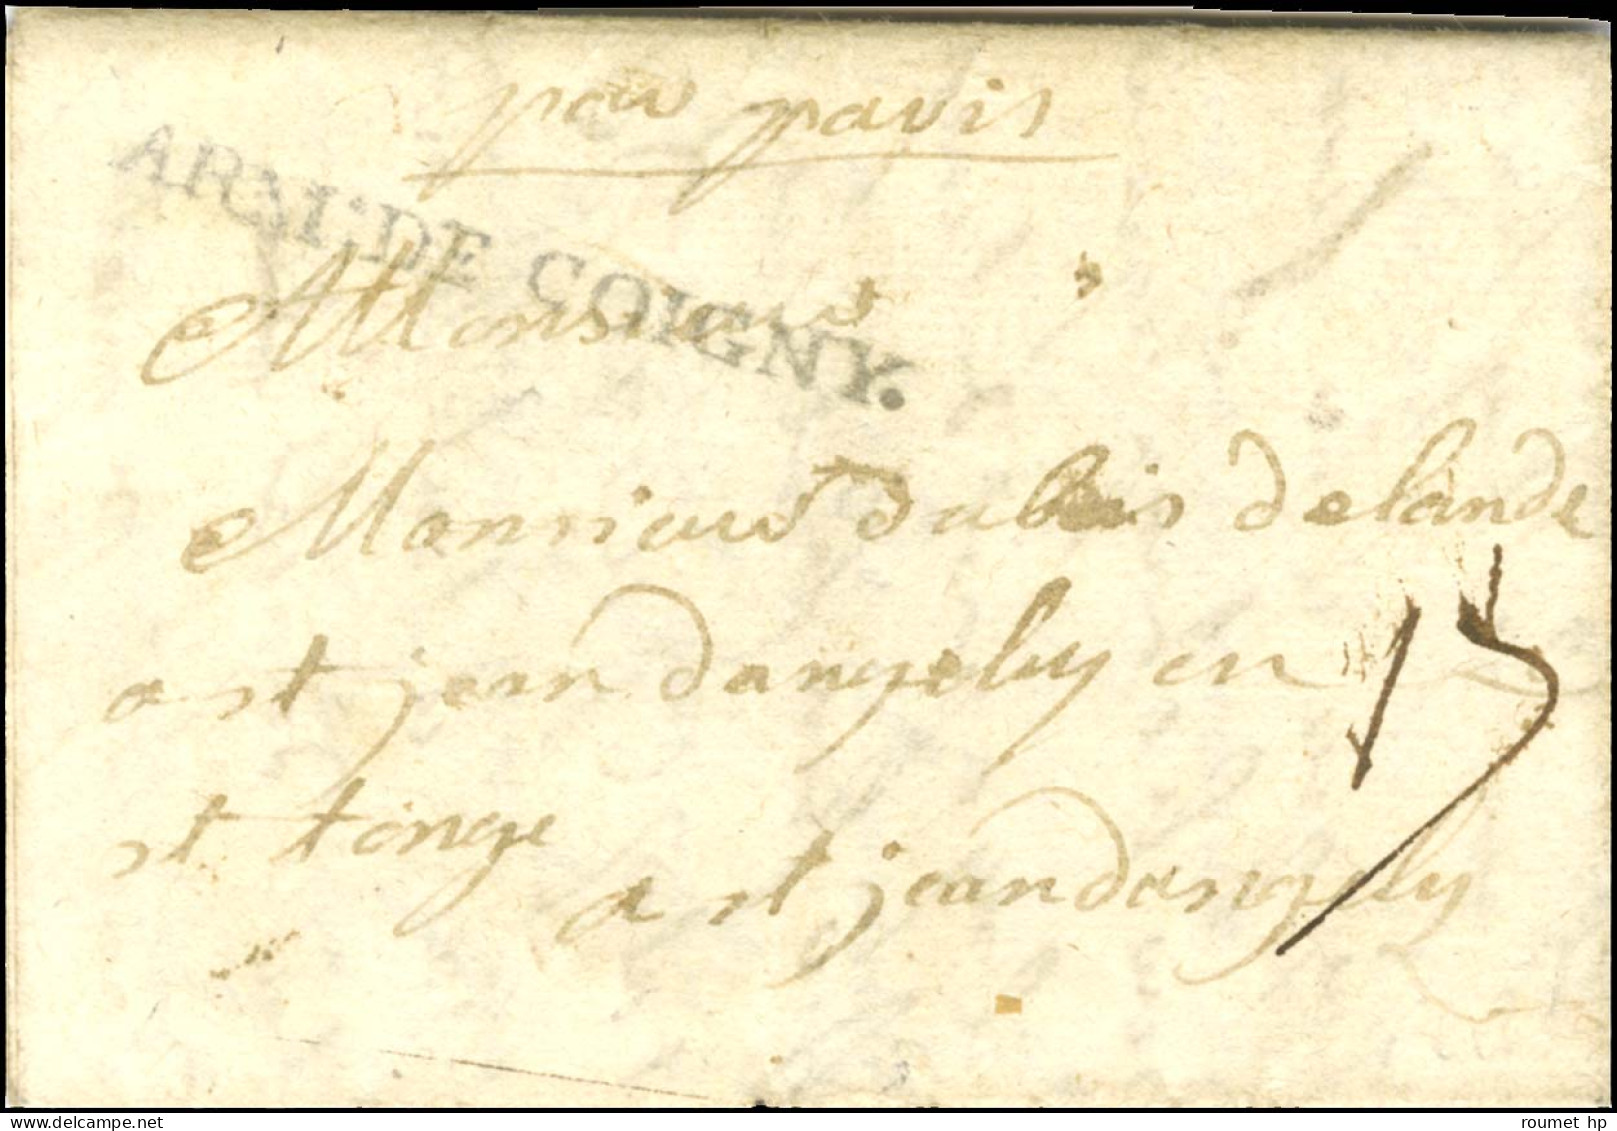 par paris
ARM.DE COIGNY.
Monsieur
Monsieur dubois delande
a st jean dangely en
15
st tonge
a st jean dangely
www.delcampe.net
roumet hp